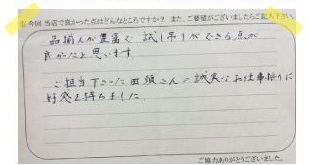 今回 当店で良かった点はどんなところですか？ また、ご要望がございましたらご記入下さい。
品揃えが豊富で 試し吊りができる点が
良かったと思います。
ご担当下さった 田頭さんの誠実なお仕事振りに
好感を持ちました。
ご協力ありがとうございました。